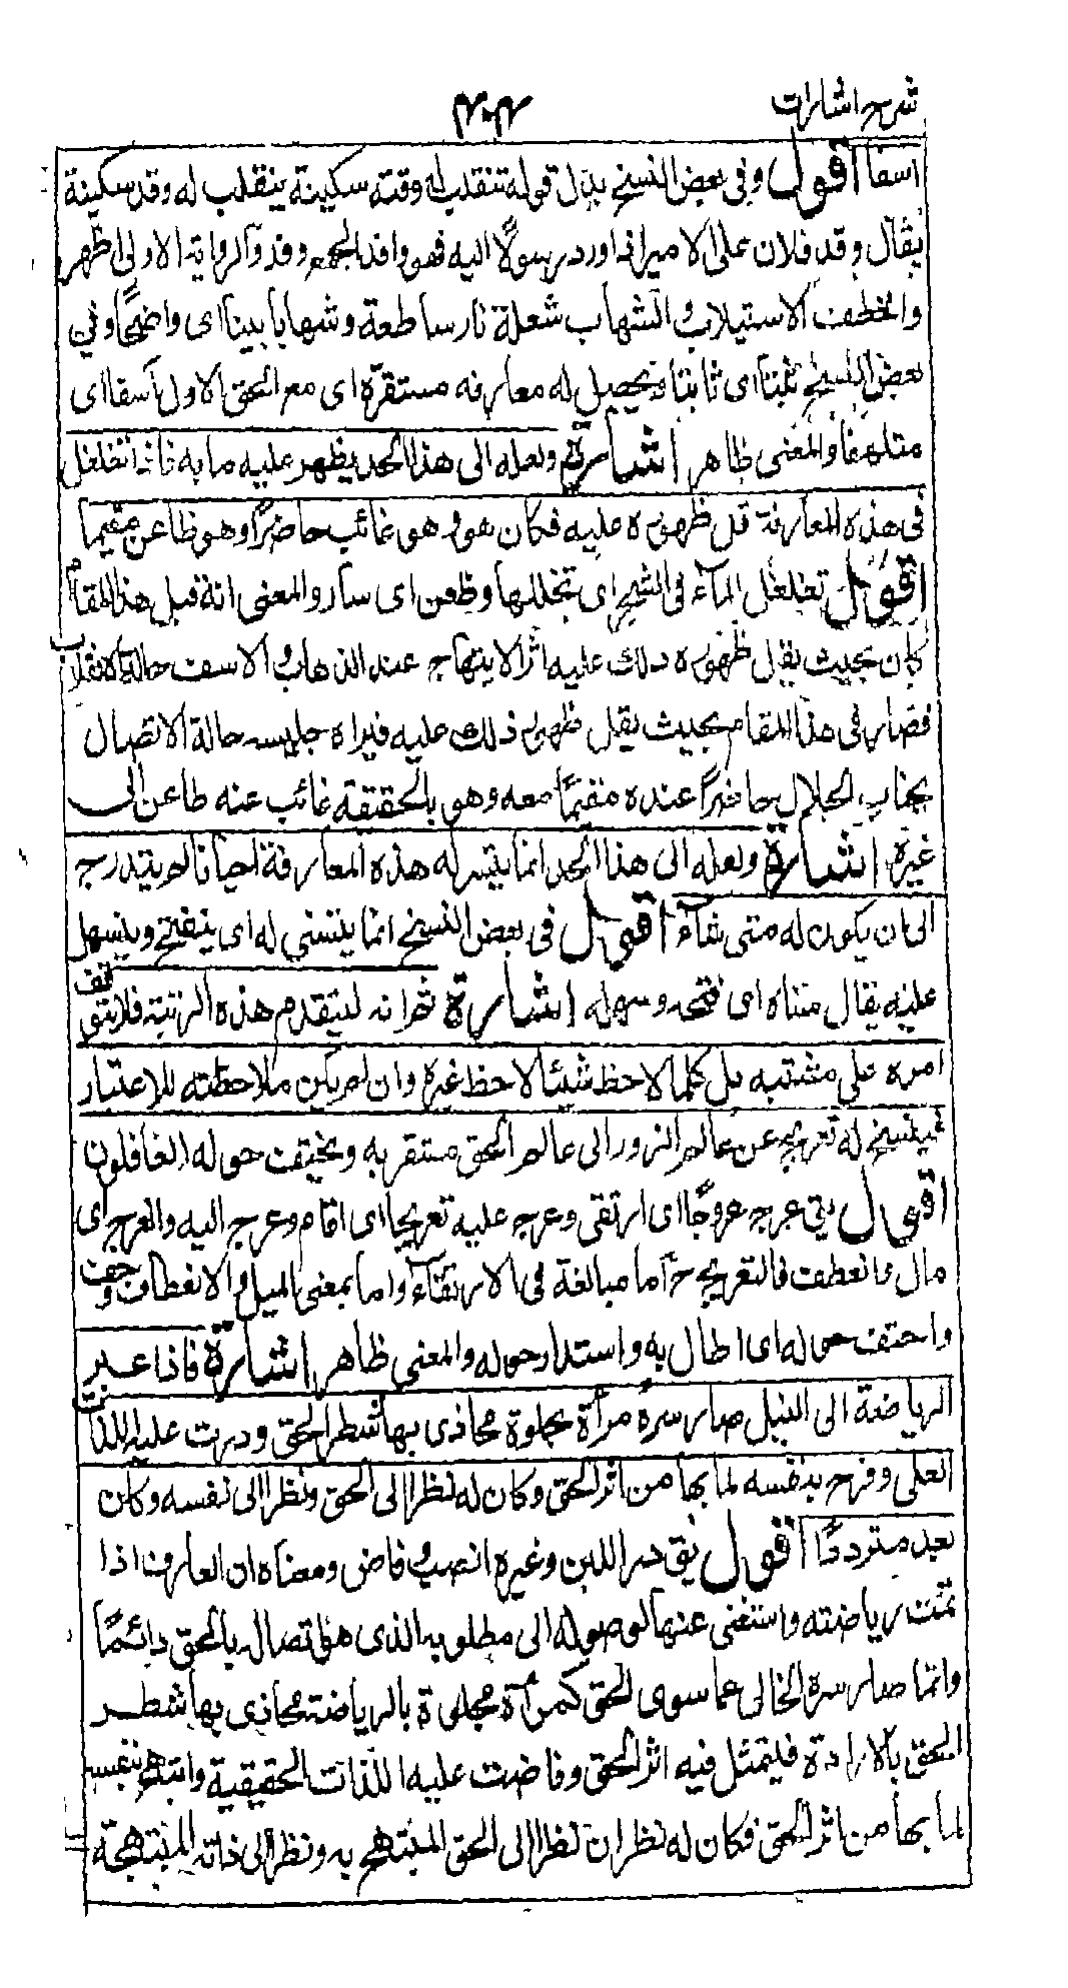 شرح اشارات
۴۰۴
اسفا اقول وفى بعض النسخ بدل قوله تنقلب له وقته سكينة ينقلب له وقد سكينة
يقال وقد فلان على الامير اى ورد رسولًا اليه فهو وافد الجمع وفد والرواية الاولى اظهر
والخطف الاستيلاب والشهاب شعلة نار ساطعة وشهابا بينا اى واضحًا وفى
بعض النسخ ثبتا اى ثابتا ويحصل له معارفه مستقرة اى مع الحق الاول آسفا اى
متلهفا والمعنى ظاهر اشارة ولعله الى هذا الحد يظهر عليه ما به فاذا تغلغل
فى هذه المعارفة قل ظهوره عليه فكان هو وهو غائب حاضرًا وهو ظاعن مقيما
اقول تغلغل المآء فى الشجر اى تخللها وظعن اى سار والمعنى انه قبل هذا المقام
كان بحيث يقل ظهور ذلك عليه اثر الابتهاج عند الذهاب والاسف حالة الانقلاب
فصار فى هذا المقام بحيث يقل ظهور ذلك عليه فيراه جليسه حالة الاتصال
بجناب الجلال حاضرًا عنده مقيمًا معه وهو بالحقيقة غائب عنه ظاعن الى
غيره اشارة ولعله الى هذا الحد انما يتيسر له هذه المعارفة احيانا ثم يتدرج
الى ان يكون له متى شآء اقول فى بعض النسخ انما يتسنى له اى ينفتح ويتسهل
عليه يقال سناه اى فتحه وسهله اشارة ثم انه ليتقدم هذه الرتبة فلا يتوقف
امره على مشتبه بل كلما لاحظ شيئا لاحظ غيره وان لم يكن ملاحظته للاعتبار
فيسنح له تعريج عن عالم الزور الى عالم الحق مستقر به ويحتف حوله الغافلون
اقول يق عرج عروجًا اى ارتقى وعرج عليه تعريجًا اى اقام وعرج اليه وانعرج اى
مال وانعطف فالتعريج ح اما مبالغة فى الارتقآء واما بمعنى الميل والانعطاف وحف
واحتف حوله اى اطاف به واستدار حوله والمعنى ظاهر اشارة فاذا عبر
الرياضة الى النيل صار سره مرآة مجلوة محاذى بها شطر الحق ودرت عليه اللذات
العلى وفرح بنفسه لما بها من اثر الحق وكان له نظر الى الحق ونظر الى نفسه وكان
بعد مترددًا اقول يق در اللبن وغيره انصب وفاض ومعناه ان العارف اذا
تمت رياضته واستغنى عنها لوصوله الى مطلوبه الذى هو اتصاله بالحق دائمًا
وانما صار سره الخالى عما سوى الحق كمرآة مجلوة بالرياضة محاذى بها شطر
الحق بالارادة فليتمثل فيه اثر الحق وفاضت عليه اللذات الحقيقية وابتهج بنفسه
لما بها من اثر الحق فكان له نظران نظر الى الحق المبتهج به ونظر الى ذاته المبتهجة